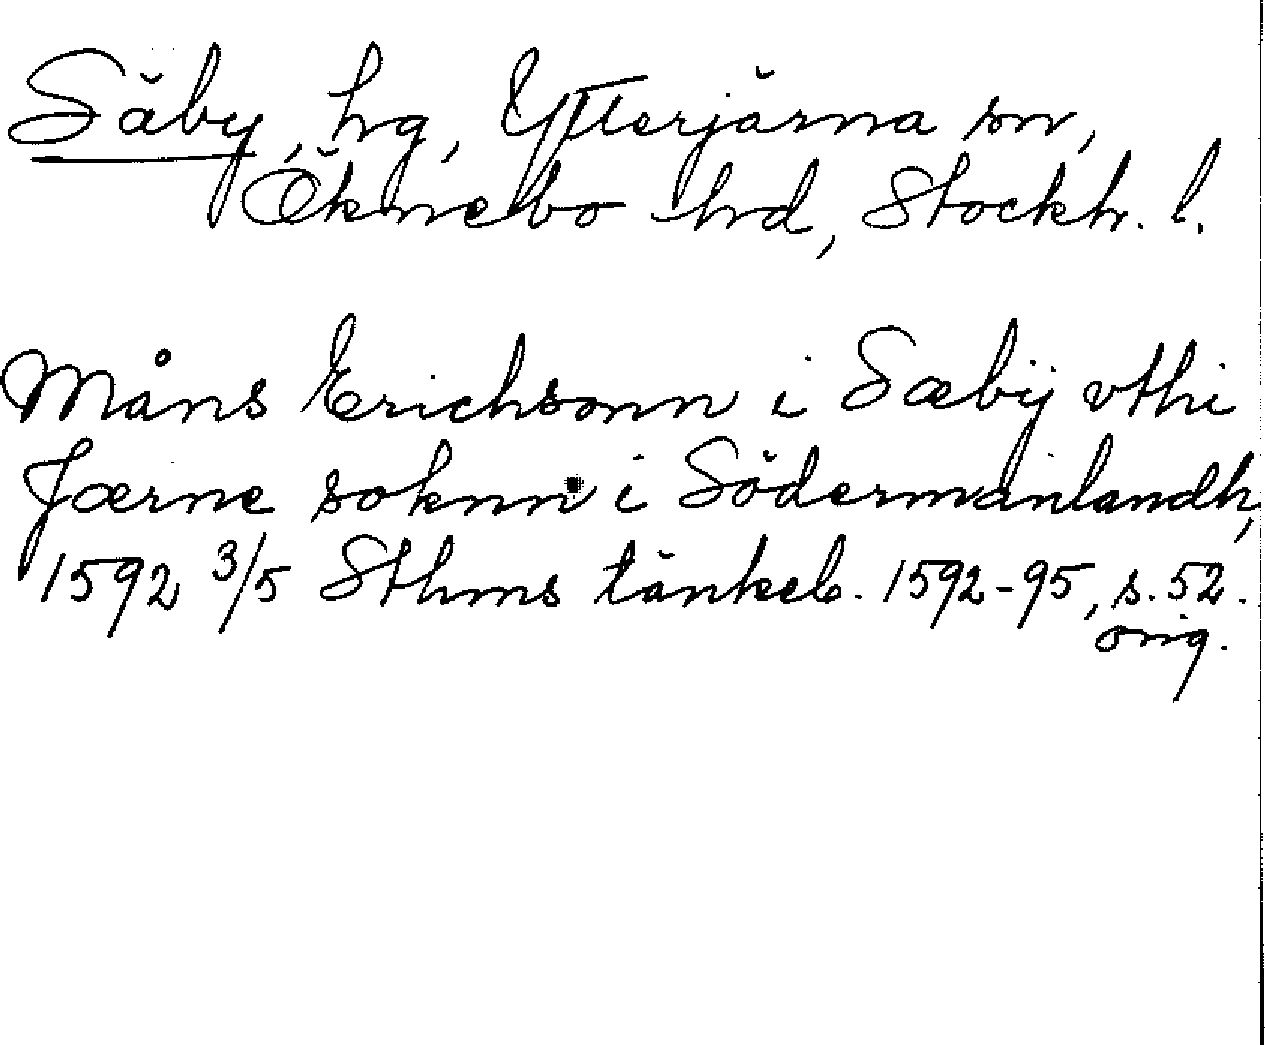 Säby, hg, Ytterjärna sn,
Öknebo hd, Stockh. l.
Måns Erichsonn i Sæbij vthi
Jærne soknn i Södermanlandh,
1592 3/5 Sthms tänkeb. 1592-95, s. 52.
orig.